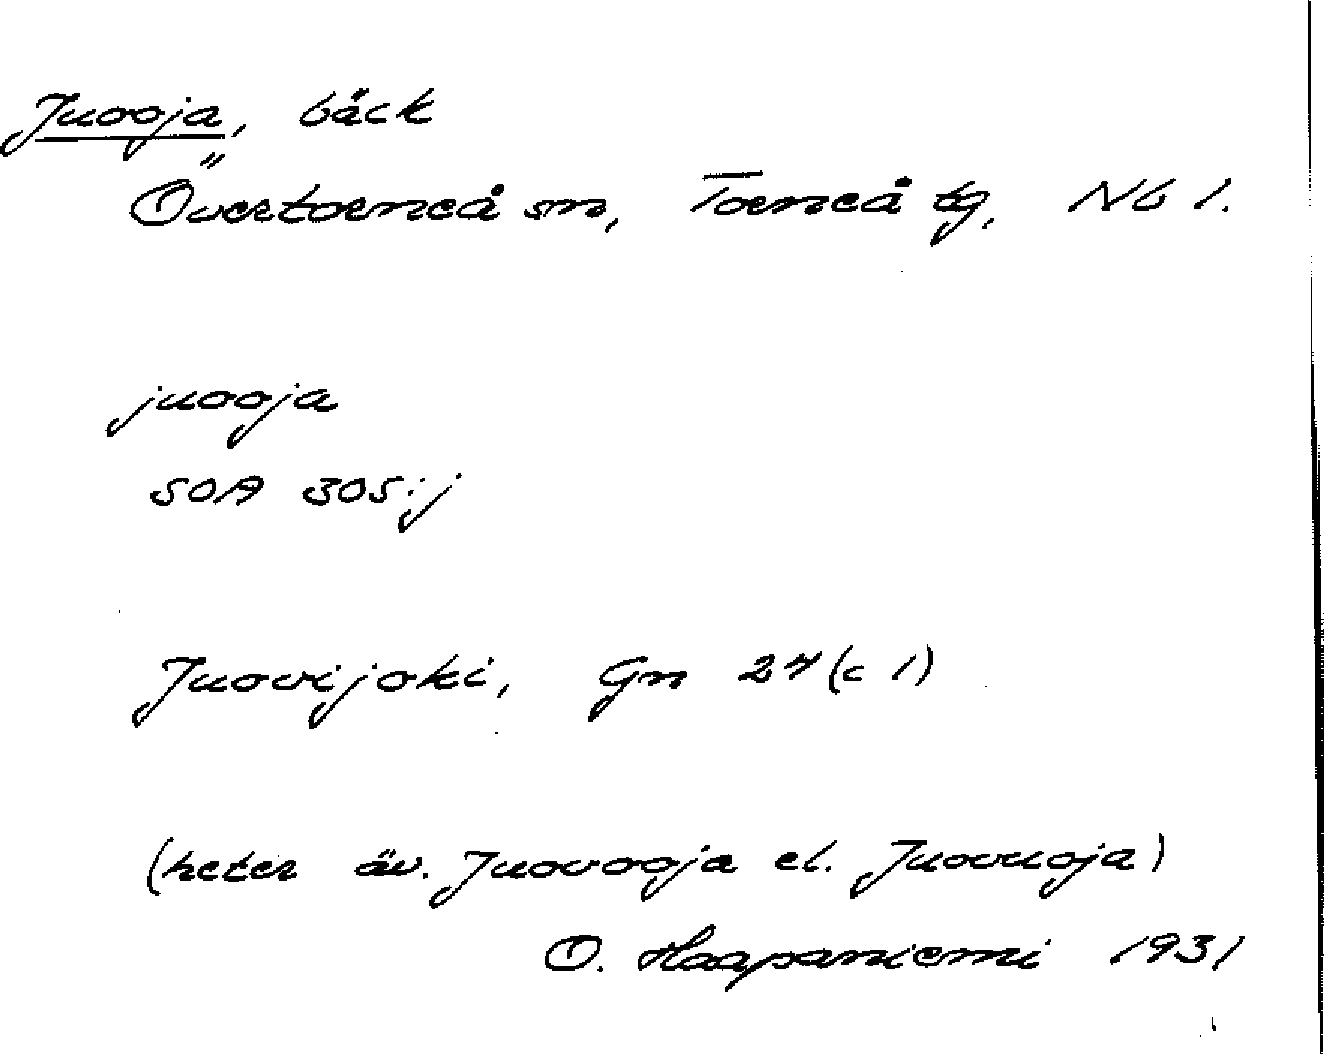 Juooja, bäck
Övertorneå sn, Torneå tg, Nb l.
juooja
SOA 305:j
Juovijoki, Gn 24 (c 1)
(heter äv. Juovooja el. Juovuoja)
O. Haapaniemi 1931